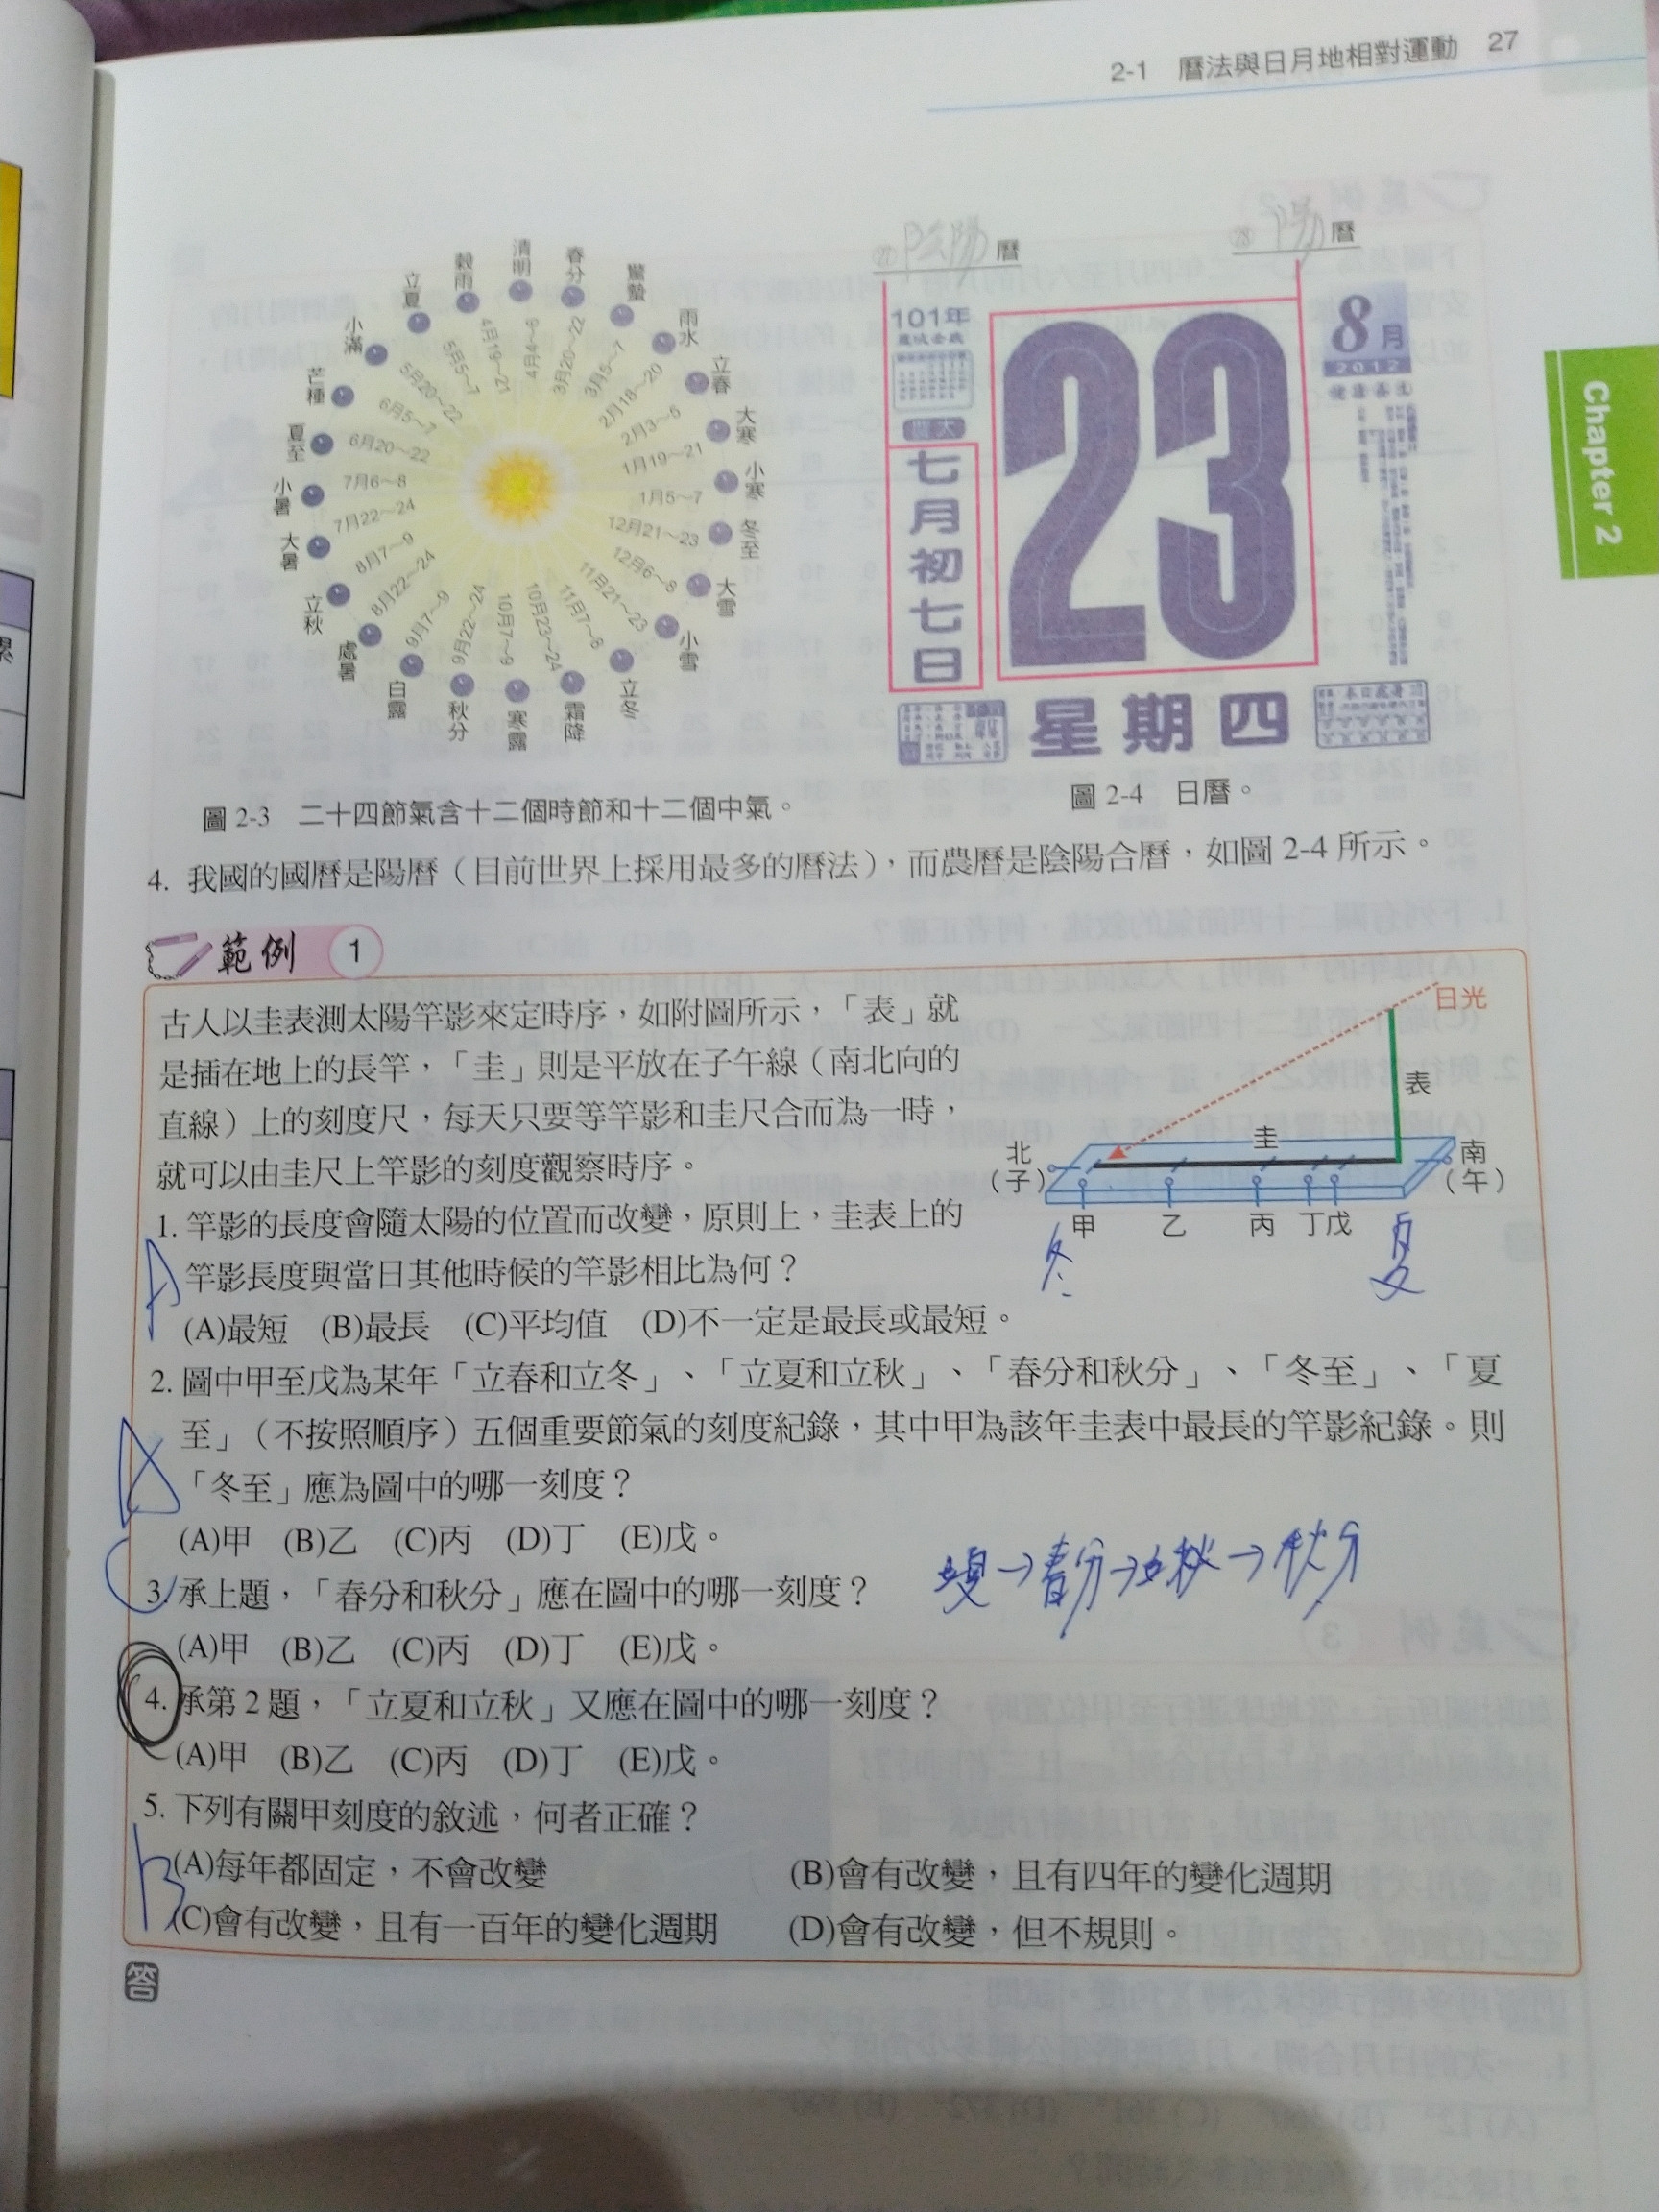 2-1 曆法與日月地相對運動 27
Chapter 2
清明
春分
驚蟄
雨水
立春
大寒
小寒
冬至
大雪
小雪
立冬
霜降
寒露
秋分
白露
處暑
立秋
大暑
小暑
夏至
芒種
小滿
立夏
穀雨
4月4~6
3月20~22
3月5~7
2月18~20
2月3~5
1月19~21
1月5~7
12月21~23
12月6~8
11月21~23
11月7~8
10月23~24
10月7~9
9月22~24
9月7~9
8月22~24
8月7~9
7月22~24
7月6~8
6月20~22
6月5~7
5月20~22
5月5~7
4月19~21
陰陽 曆
陽 曆
101年
七月初七日
23
8月
2012
星期四
圖 2-3 二十四節氣含十二個時節和十二個中氣。
圖 2-4 日曆。
4. 我國的國曆是陽曆(目前世界上採用最多的曆法),而農曆是陰陽合曆,如圖 2-4 所示。
範例 1
古人以圭表測太陽竿影來定時序,如附圖所示,「表」就
是插在地上的長竿,「圭」則是平放在子午線(南北向的
直線)上的刻度尺,每天只要等竿影和圭尺合而為一時,
就可以由圭尺上竿影的刻度觀察時序。
日光
表
圭
北
(子)
南
(午)
甲 乙 丙 丁 戊
冬 夏
1. 竿影的長度會隨太陽的位置而改變,原則上,圭表上的
竿影長度與當日其他時候的竿影相比為何?
A
(A)最短 (B)最長 (C)平均值 (D)不一定是最長或最短。
2. 圖中甲至戊為某年「立春和立冬」、「立夏和立秋」、「春分和秋分」、「冬至」、「夏
至」(不按照順序)五個重要節氣的刻度紀錄,其中甲為該年圭表中最長的竿影紀錄。則
A
「冬至」應為圖中的哪一刻度?
(A)甲 (B)乙 (C)丙 (D)丁 (E)戊。
C
3. 承上題,「春分和秋分」應在圖中的哪一刻度?
立夏→春分→立秋→秋分
(A)甲 (B)乙 (C)丙 (D)丁 (E)戊。
4. 承第 2 題,「立夏和立秋」又應在圖中的哪一刻度?
(A)甲 (B)乙 (C)丙 (D)丁 (E)戊。
5. 下列有關甲刻度的敘述,何者正確?
B
(A)每年都固定,不會改變 (B)會有改變,且有四年的變化週期
(C)會有改變,且有一百年的變化週期 (D)會有改變,但不規則。
答